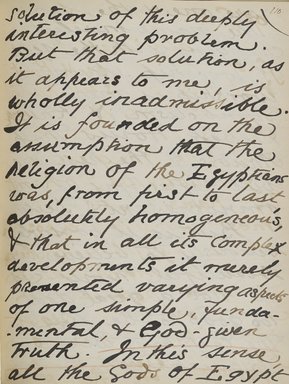 solution of this deeply
interesting problem.
But that solution, as
it appears to me, is
wholly inadmissible.
It is founded on the
assumption that the
religion of the Egyptians
was, from first to last
absolutely homogeneous,
& that in all its complex
developments it merely
presented varying aspects
of one simple, funda-
mental, & God-given
truth. In this sense
all the Gods of Egypt